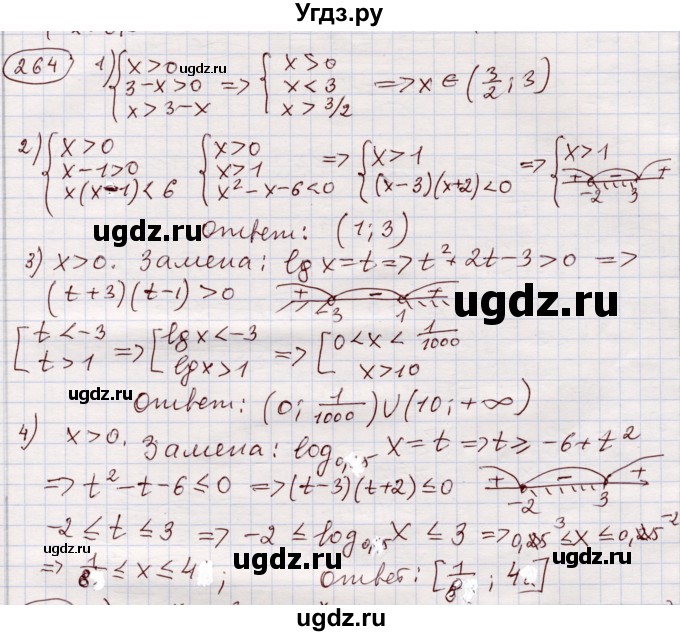 Угдз.ру
264 1) { x>0 ; 3-x>0 ; x>3-x => { x>0 ; x<3 ; x>3/2 => x ∈ (3/2 ; 3)
ugdz.ru
2) { x>0 ; x-1>0 ; x(x-1)<6 { x>0 ; x>1 ; x²-x-6<0 => { x>1 ; (x-3)(x+2)<0 => { x>1 ; + - + -2 3
Ответ: (1;3)
ugdz.ru
ugdz.ru
3) x>0. Замена: lg x=t => t²+2t-3>0 =>
(t+3)(t-1)>0 + - + -3 1
ugdz.ru
[ t<-3 ; t>1 => [ lgx<-3 ; lgx>1 => [ 0<x<1/1000 ; x>10
ugdz.ru
Ответ: (0; 1/1000)∪(10;+∞)
4) x>0. Замена: log₀,₅ x=t => t ≥ -6+t²
ugdz.ru
=> t²-t-6≤0 => (t-3)(t+2)≤0 + - + -2 3
-2≤t≤3 => -2≤log₀,₅ x≤3 => 0,5³≤x≤0,5⁻²
ugdz.ru
ugdz.ru
=> 1/8≤x≤4; Ответ: [1/8 ; 4]
ugdz.ru